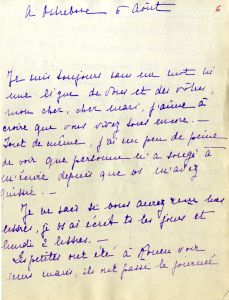 5 Août
6
Je suis toujours sans un mot ni
une ligne de vous et des vôtres,
mon cher, cher mari, j'aime à
croire que vous vivez tous encore. —
Tout de même, j'ai un peu de peine
de voir que personne n'a songé à
m'écrire depuis que vs m'avez
quittée. —
Je ne sais si vous aurez reçu mes
lettres, je vs ai écrit ts les jours et
lundi 2 lettres. —
Les petites ont été à Rouen voir
leurs maris, ils ont passé la journée